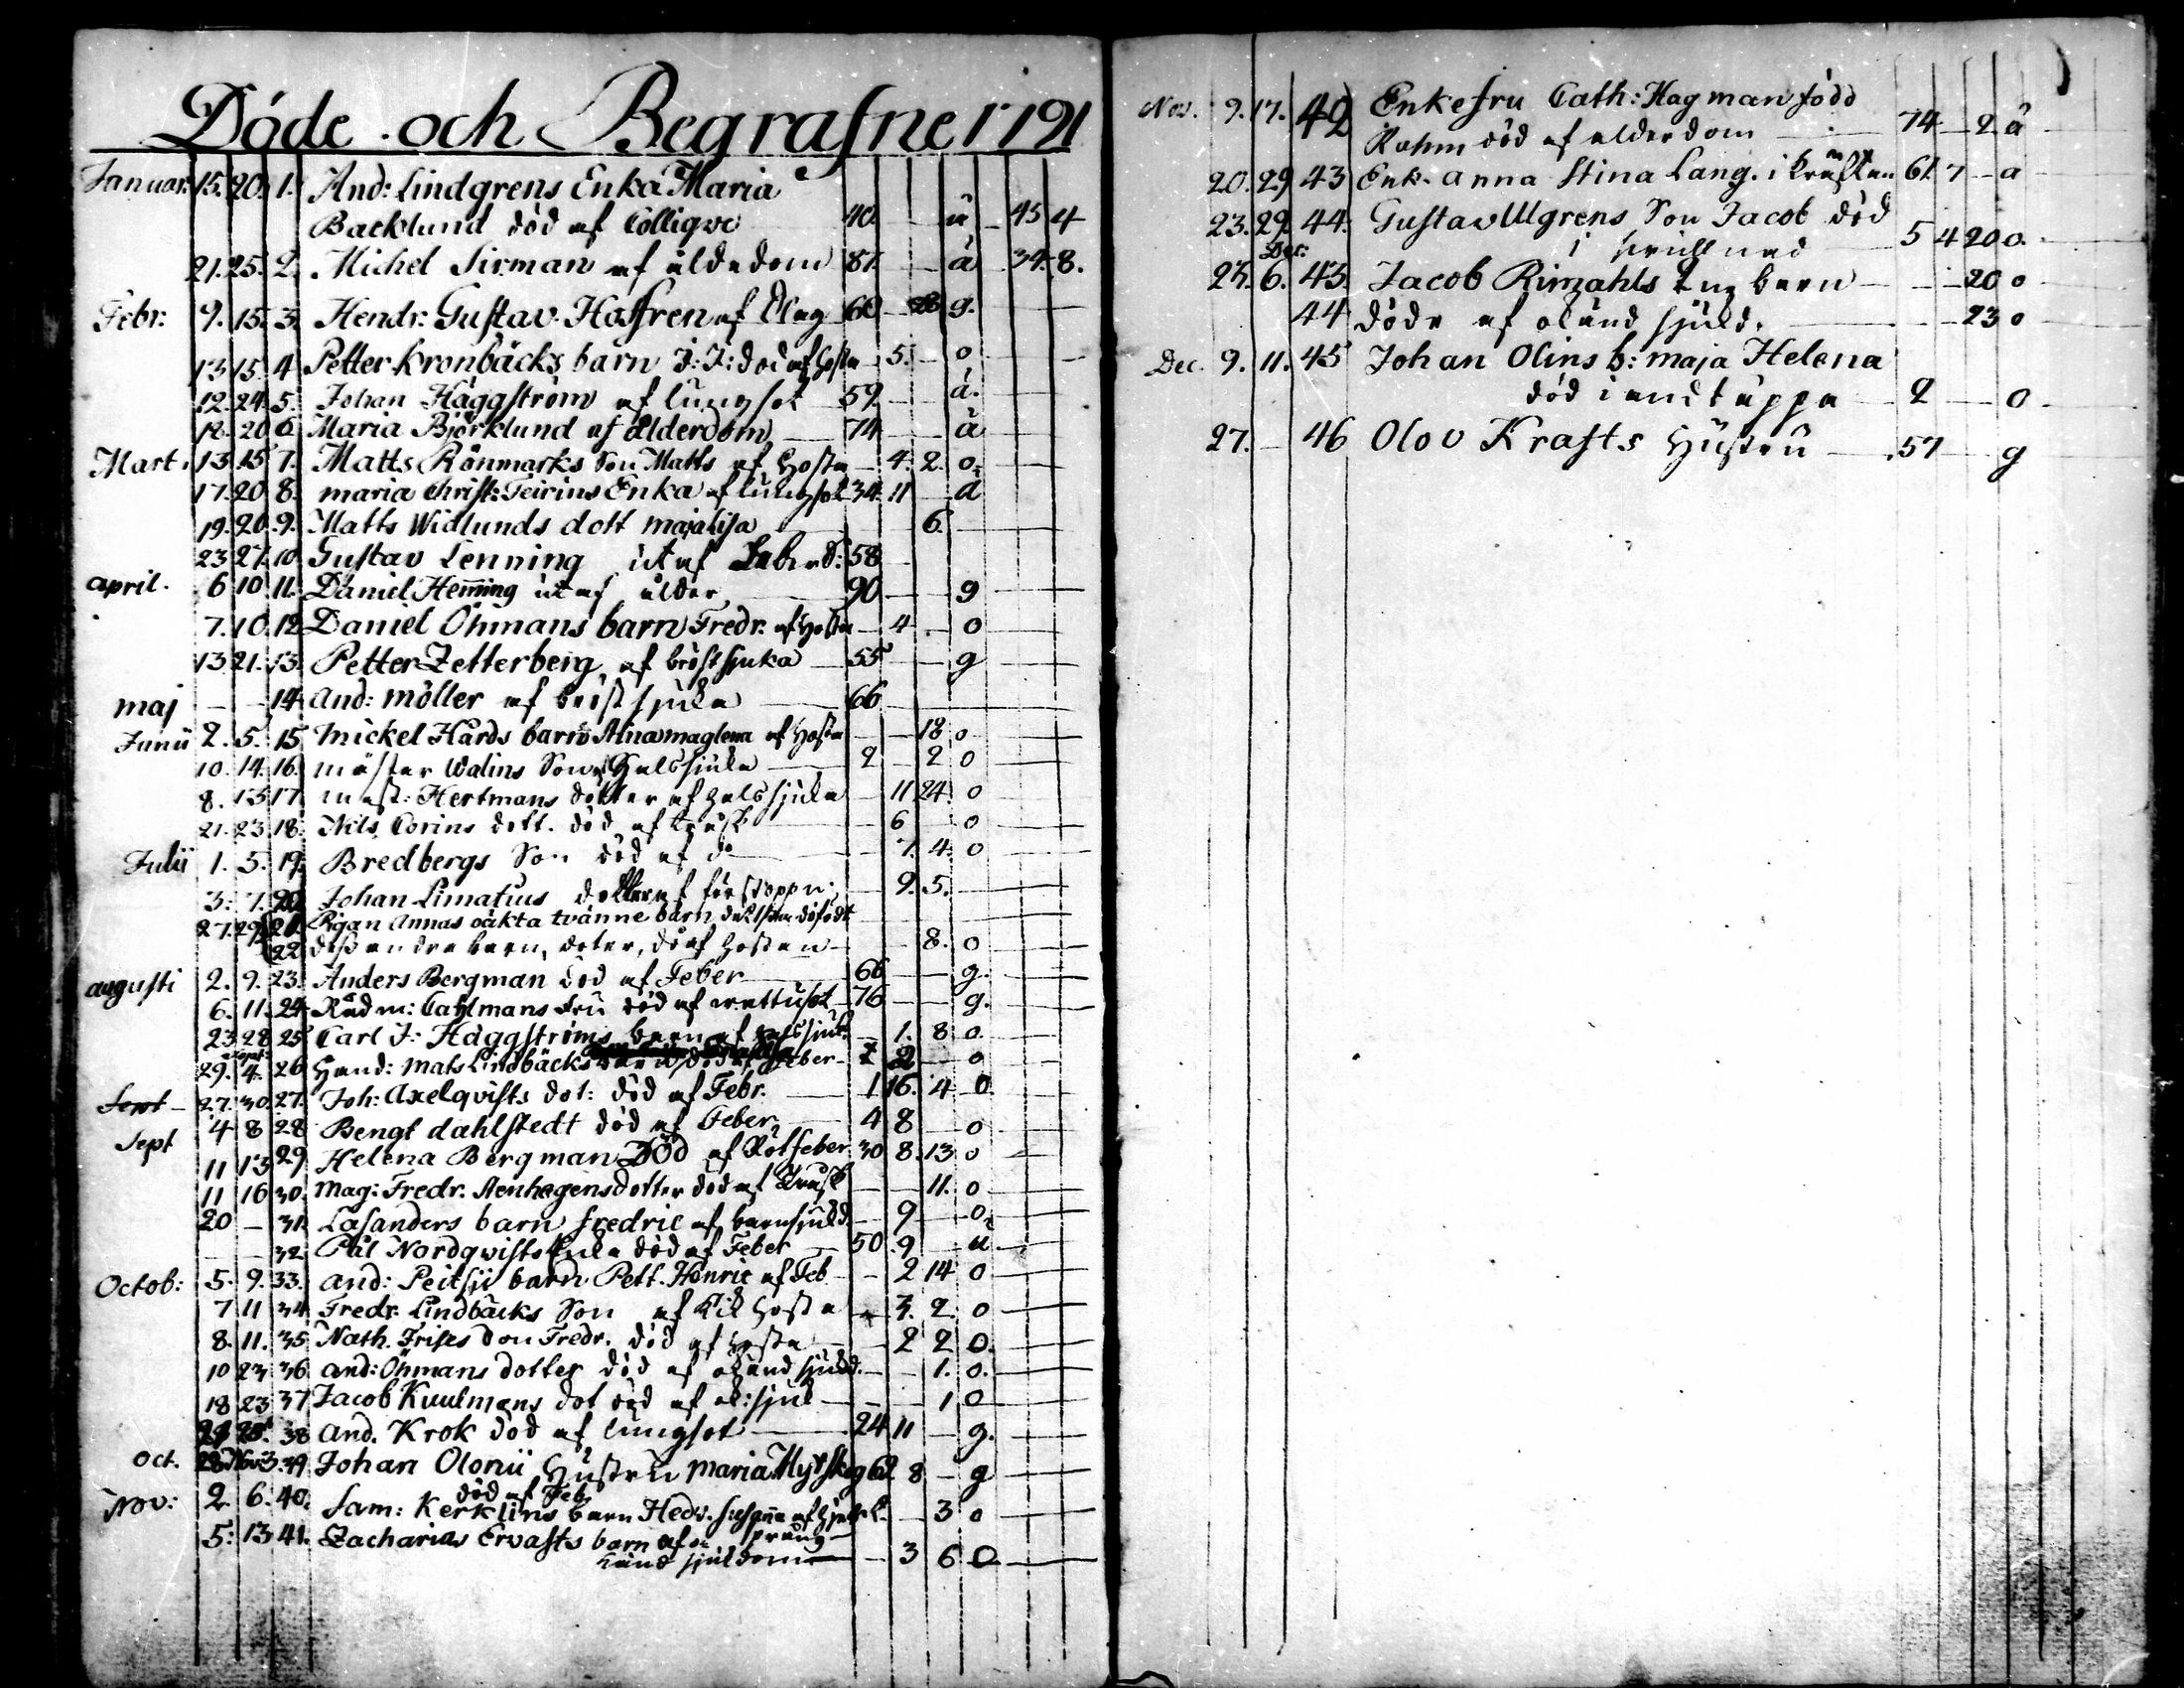 Döde och Begrafne 1791
Januar. 15. 20. 1. And: Lindgrens Enka Maria
Backlund död af Colliqve 40. å 45 4
21. 25. 2. Michel Sirman af ålderdom 81. å 34. 8.
Febr: 9. 15. 3. Hendr: Gustav Hoffren af Slag 60 28 g.
13 15. 4 Petter Kronbäcks barn J: J: död af Hosta 5. o
12. 24. 5. Johan Häggström af lungsot 59. å.
18. 20 6 Maria Björklund af ålderdom 74 å
Mart. 13 15 7. Matts Rönmarks Son Matts af Hosta 4. 2. o
17. 20 8. maria Christ: Feirins Enka af lungsot 34. 11 å
19. 20. 9. Matts Widlunds dott maja Lisa 6.
23 27. 10 Gustav Lenning ut af 58
april. 6 10 11. Daniel Henning ut af ålder 90 g
7. 10. 12 Daniel Öhmans barn Fredr. af Hosta 4 o
13 21. 13. Petter Zetterberg af bröstsjuka 55 g
maj 14 And: möller af bröstsjuka 66
Junii 2. 5. 15 Mickel Hårds barn Stina maglena af Hosta 18 o
10. 14. 16. mäster Walins Son af Halssjuka 2 2 o
8. 13 17. mäst: Hertmans dotter af halssjuka 11 24. o
21. 23. 18. Nils Corins dott. död af trusk 6 o
Julii 1. 5. 19. Bredbergs Son död af do 7. 4. o
3. 7. 20. Johan Limatius dotter af förstoppn: 9. 5.
27. 29 21. Pigan Annas oäkta tvänne barn det 1sta dödfödt
22 dess andra barn, doter, dö af hostan 8. o
augusti 2. 9. 23. Anders Bergman död af Feber 66 g.
6. 11. 24 Rådm: Cahlmans Fru död af wattusot 76 g.
23 28 25 Carl J: Häggströms barn af halssjuk. 1. 8 o.
29. Sept: 4. 26 Hand: Mats Lindbäcks Feber 2 o
27. 30. 27. Joh: Axelqvists dot: död af Febr. 1 16. 4 o
Sept 4 8 28 Bengt dahlstedt död af Feber 4 8 o
11 13 29 Helena Bergman Död af Rötfeber 30 8. 13 o
11 16 30. Mag: Fredr. Stenhagens dotter död af trusk 11. o
20 31. Lasanders barn fredric af barnsjukd. 9 o
32. Pål Nordqwists Enka död af Feber 50. 9 å
Octob: 5. 9. 33. And: Peitsii barn Pett. Henric af Feb. 2 14 o
7 11 34 Fredr. Lindbäcks Son af Kik hosta 3. 2. o
8. 11. 35 Nath. Frises Son Fredr. död af hosta 2 2 o.
10 23 36 and: Öhmans dotter död af okänd sjukd. 1. o.
18 23 37 Jacob Kuulmans dot död af ok: sjuk 1 o
38 And. Krok död af lungsot 24 11 g.
Oct. 28 Nov: 3. 39 Johan Olonii Hustru Maria Myrskog 62 8 g
död af Feb.
Nov: 2. 6. 40. Sam: Kerklins barn Hedv. Susanna af hjertsl- 3 o
språng
5. 13 41. Zacharias Ervasts barn af o-
känd sjukdom 3 6 o
Nov. 9. 17. 42 Enkefru Cath: Hagman född
Rahm död af ålderdom 74 2 å
20. 29 43 Enk. Anna Stina Lang. i kräftan 61. 7 a
23. 29. 44. Gustav Ulgrens Son Jacob död
i 5 4 20 o.
Dec:
25. 6. 43. Jacob Rimahls 2ne barn 20 o
44 döde af okänd sjukd. 23 o
Dec. 9. 11. 45 Johan Olins b: maja Helena
död i andtäppa 2 o
27. 46 Olov Krafts Hustru 57 g